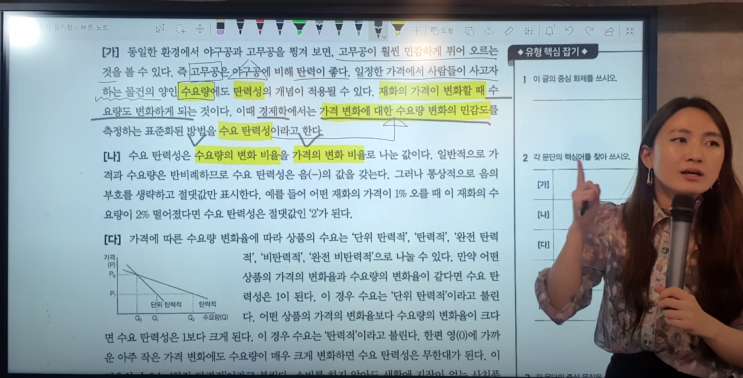 [가] 동일한 환경에서 야구공과 고무공을 튕겨 보면, 고무공이 훨씬 민감하게 튀어 오르는
것을 볼 수 있다. 즉 고무공은 야구공에 비해 탄력이 좋다. 일정한 가격에서 사람들이 사고자
하는 물건의 양인 수요량에도 탄력성의 개념이 적용될 수 있다. 재화의 가격이 변화할 때 수
요량도 변화하게 되는 것이다. 이때 경제학에서는 가격 변화에 대한 수요량 변화의 민감도를
측정하는 표준화된 방법을 수요 탄력성이라고 한다.
[나] 수요 탄력성은 수요량의 변화 비율을 가격의 변화 비율로 나눈 값이다. 일반적으로 가
격과 수요량은 반비례하므로 수요 탄력성은 음(−)의 값을 갖는다. 그러나 통상적으로 음의
부호를 생략하고 절댓값만 표시한다. 예를 들어 어떤 재화의 가격이 1% 오를 때 이 재화의 수
요량이 2% 떨어졌다면 수요 탄력성은 절댓값인 '2'가 된다.
[다] 가격에 따른 수요량 변화율에 따라 상품의 수요는 '단위 탄력적', '탄력적', '완전 탄력
적', '비탄력적', '완전 비탄력적'으로 나눌 수 있다. 만약 어떤
상품의 가격의 변화율과 수요량의 변화율이 같다면 수요 탄
력성은 1이 된다. 이 경우 수요는 '단위 탄력적'이라고 불린
다. 어떤 상품의 가격의 변화율보다 수요량의 변화율이 크다
면 수요 탄력성은 1보다 크게 된다. 이 경우 수요는 '탄력적'이라고 불린다. 한편 영(0)에 가까
운 아주 작은 가격 변화에도 수요량이 매우 크게 변화하면 수요 탄력성은 무한대가 된다. 이
가격
(P)
P₀
P₁
단위 탄력적
탄력적
Q₀
Q₁
Q₂
수요량(Q)
유형 핵심 잡기
1 이 글의 중심 화제를 쓰시오.
2 각 문단의 핵심어를 찾아 쓰시오.
[가]
[나]
[다]